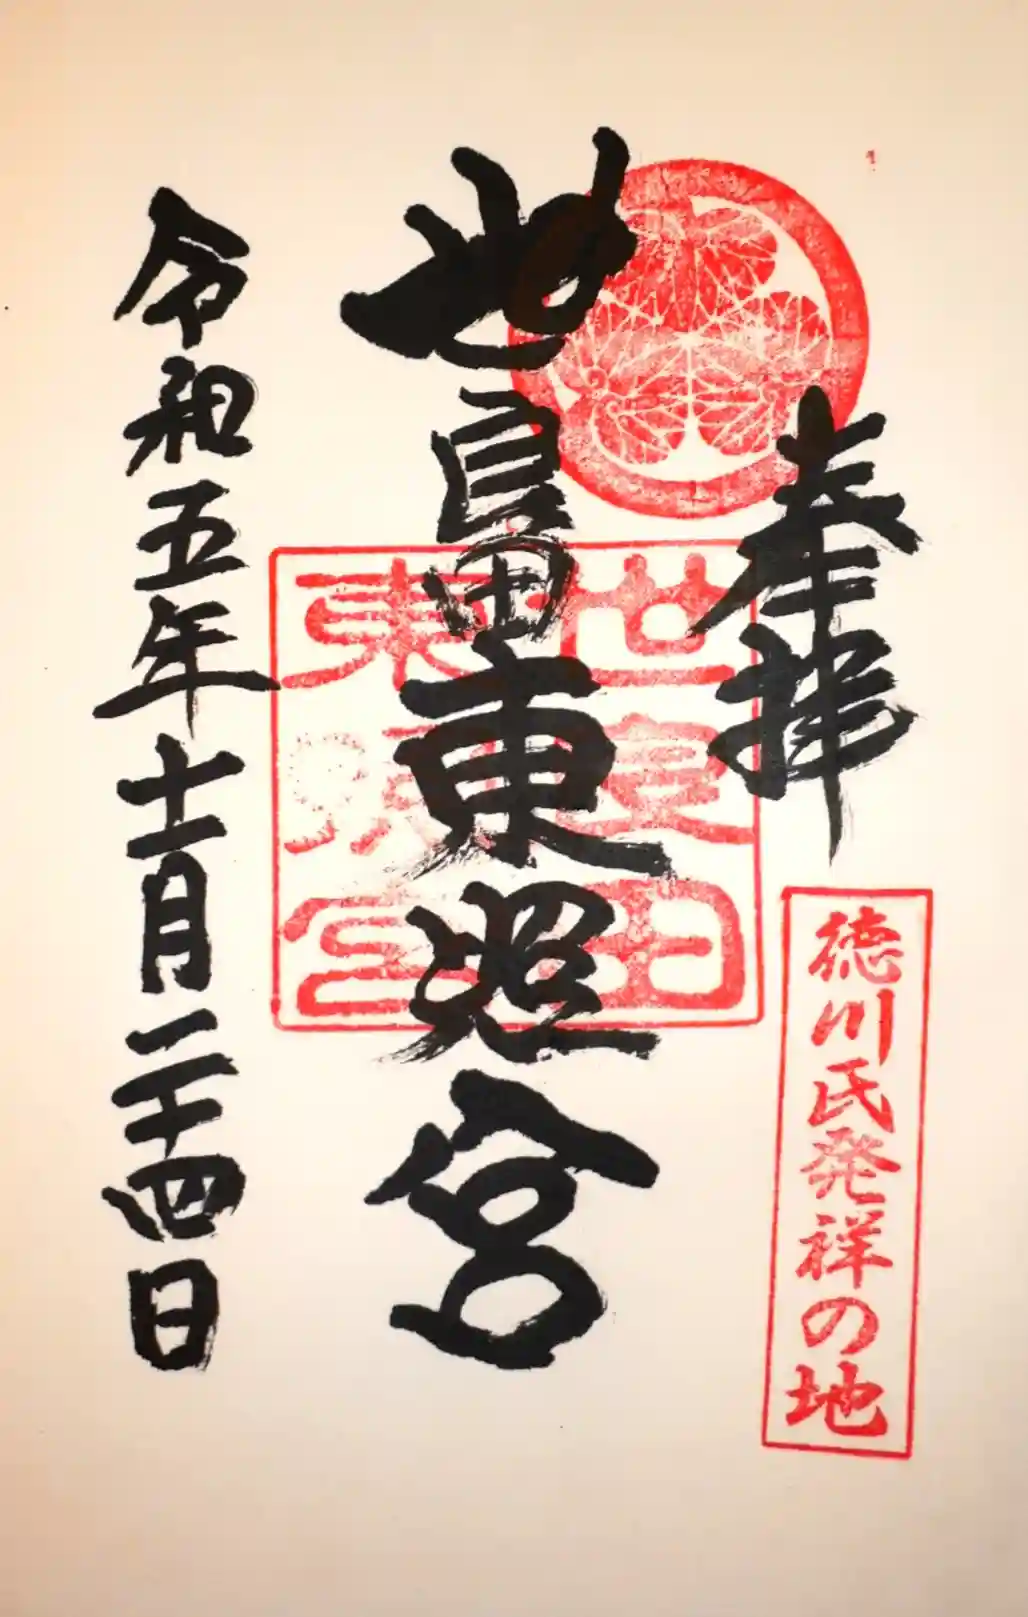 奉拝
徳川氏発祥の地
世良田東照宮
世良田
東照宮
令和五年十一月二十四日